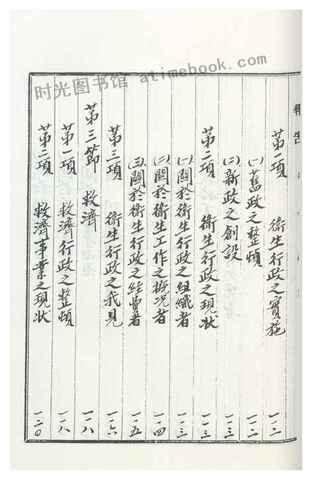 时光图书馆 atimebook.com
第一項　衛生行政之實施　一一二
(一)舊政之整頓　一一二
(二)新政之創設　一一二
第二項　衛生行政之現狀　一一三
(一)關於衛生行政之組織者　一一三
(二)關於衛生工作之概况者　一一四
(三)關於衛生行政之經費者　一一五
第三項　衛生行政之我見　一一六
第三節　救濟　一一八
第一項　救濟行政之整頓　一一八
第二項　救濟事業之現狀　一二〇